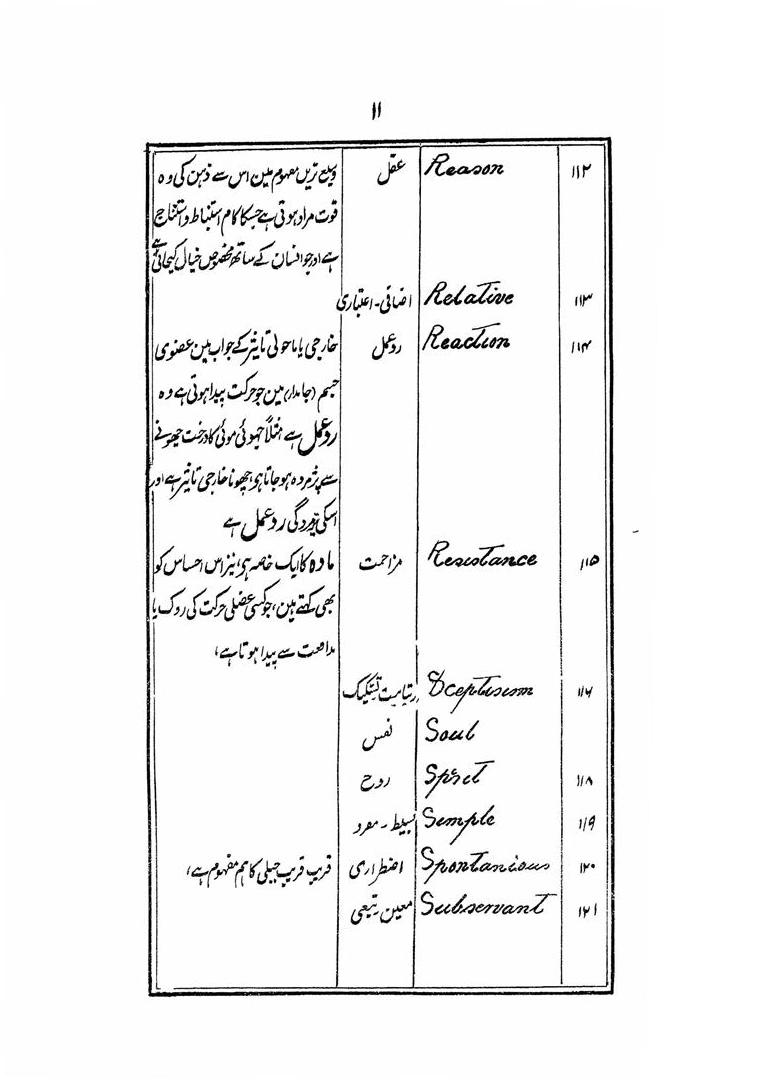 ۱۱
۱۱۲ Reason عقل وسیع ترین مفہوم مین اس سے ذہن کی وہ
قوت مراد ہوتی ہے جسکا کام استنباط و استنتاج
ہے اور جو انسان کے ساتھ مخصوص خیال کیجاتی ہے
۱۱۳ Relative اضافی - اعتباری
۱۱۴ Reaction ردعمل خارجی یا ماحولی تاثیر کے جواب مین عضوی
جسم (جامدار) مین جو حرکت پیدا ہوتی ہے وہ
ردعمل ہے مثلاً چھوئی موئی کا درخت چھونے
سے پژمردہ ہو جاتا ہی، چھونا خارجی تاثیر ہے اور
اسکی پژمردگی ردعمل ہے
۱۱۵ Resistance مزاحمت مادہ کا ایک خاصہ ہی، نیز اس احساس کو
بھی کہتے ہین، جو کسی عضلی حرکت کی روک یا
مدافعت سے پیدا ہوتا ہے،
۱۱۶ Scepticism تشکیک
Soul نفس
۱۱۸ Spirit روح
۱۱۹ Semple بسیط - مفرد
۱۲۰ Spontanious اضطراری قریب قریب جبلی کا ہم مفہوم ہے،
۱۲۱ Subservant معین تبیعی